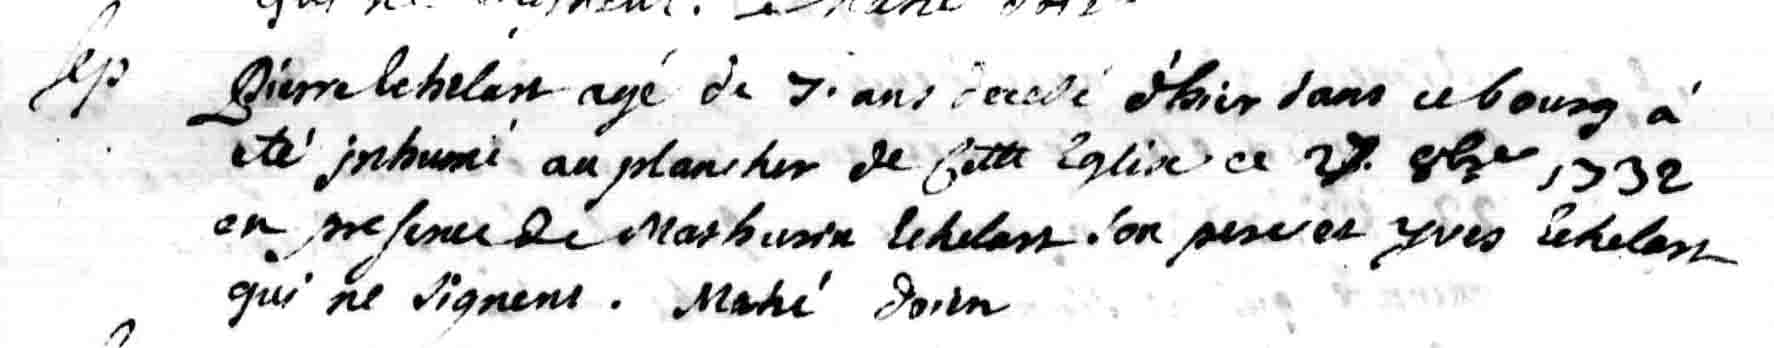 qui ne signent. Mahé
Sep Pierre lehelart agé de 7. ans decedé d'hier dans ce bourg á
eté jnhumé au plancher de Cette Eglise ce 27. 8bre 1732
en presence de Mathurin lehelart son pere et yves lehelart
qui ne signent. Mahé doien